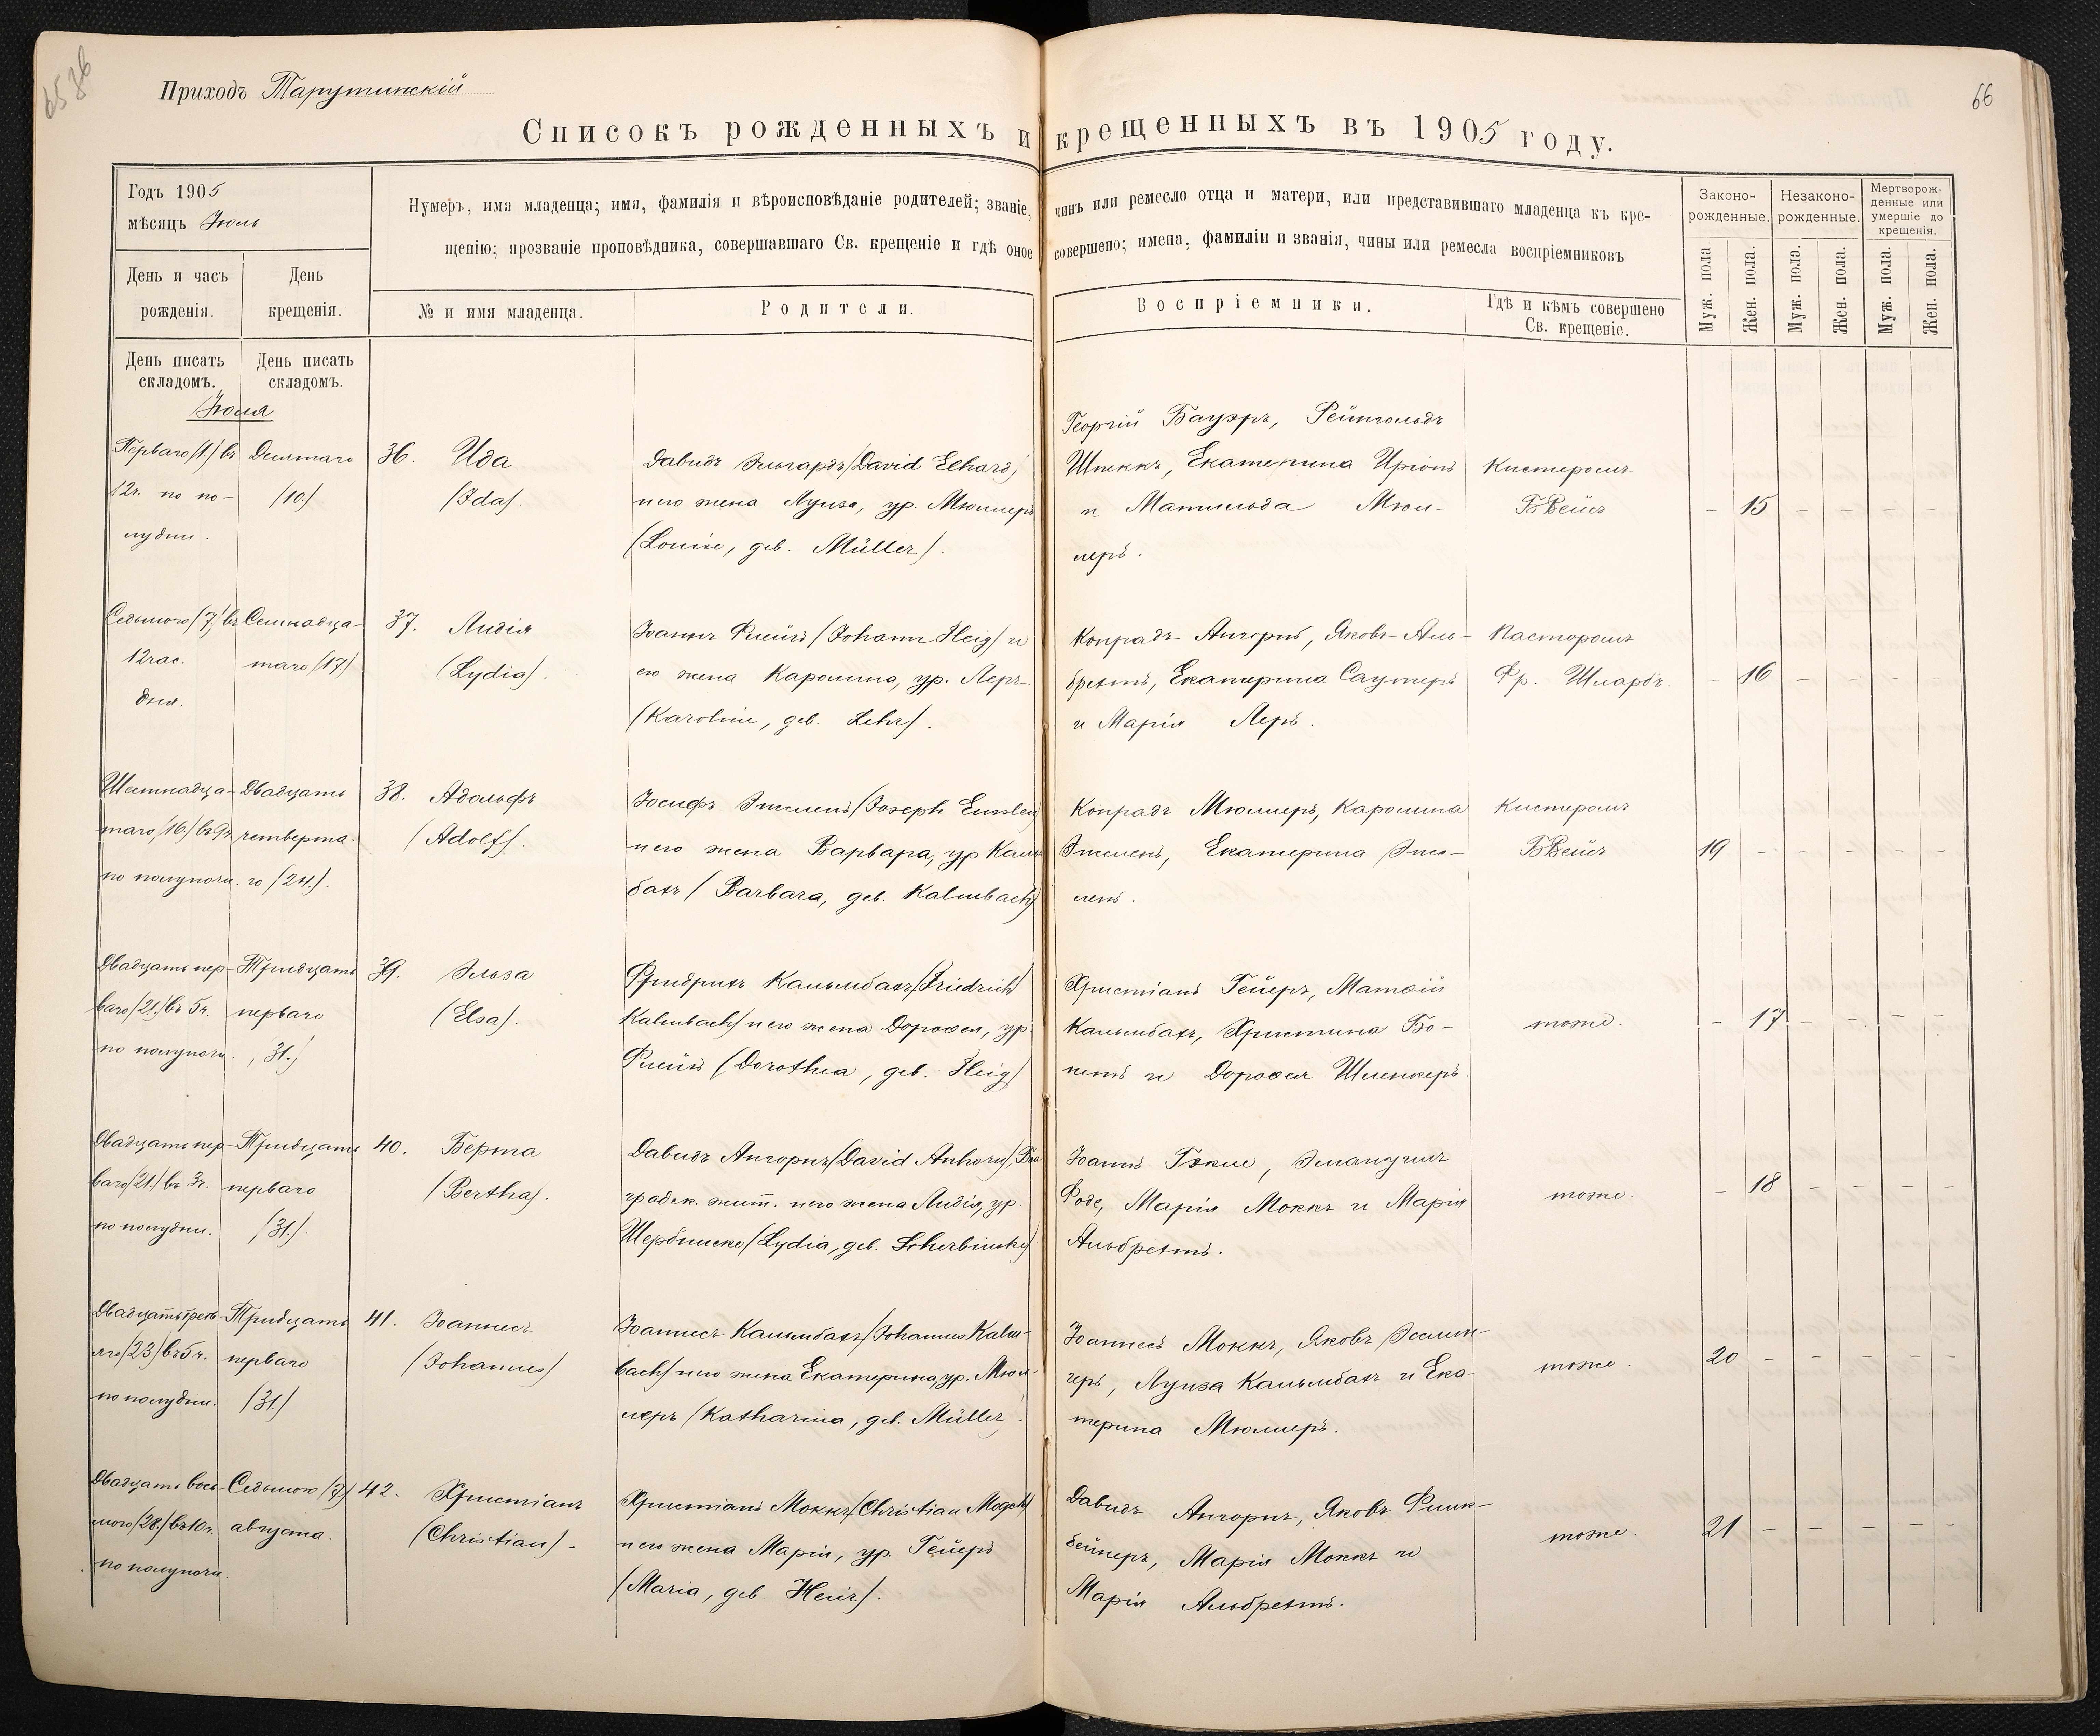 6586
66
Приходъ Тарутинскій
Списокъ рожденныхъ и крещенныхъ въ 1905 году.
Годъ 1905
мѣсяцъ Іюль
День и часъ
рожденія.
День
крещенія.
Нумеръ, имя младенца; имя, фамилія и вѣроисповѣданіе родителей; званіе, чинъ или ремесло отца и матери, или представившаго младенца къ кре-
щенію; прозваніе проповѣдника, совершавшаго Св. крещеніе и гдѣ оное совершено; имена, фамиліи и званія, чины или ремесла воспріемниковъ
№ и имя младенца.
Родители.
Воспріемники.
Гдѣ и кѣмъ совершено
Св. крещеніе.
Законо-
рожденные.
Незаконо-
рожденные.
Мертворож-
денные или
умершіе до
крещенія.
Муж. пола
Жен. пола.
Муж. пола.
Жен. пола.
Муж. пола.
Жен. пола.
День писать
складомъ.
День писать
складомъ.
Іюля
Перваго (1.) въ
12ч. по по-
лудни.
Десятаго
(10.)
36. Ида
(Ida).
Давидъ Эльгардъ (David Elhard)
и его жена Луиза, ур. Мюллеръ
(Louise, geb. Müller).
Георгій Бауэръ, Рейнгольдъ
Шпеккъ, Екатерина Иріонъ
и Матильда Мюл-
леръ.
Кистеромъ
Б Вейсъ
– 15 – – – –
Седьмого (7.) въ
12час.
дня.
Семнадца-
таго (17)
37. Лидія
(Lydia).
Іоаннъ Флейгъ (Johann Fleig) и
его жена Каролина, ур. Леръ
(Karoline, geb. Lehr).
Конрадъ Ангорнъ, Яковъ Аль-
брехтъ, Екатерина Саутеръ
и Марія Леръ.
Пасторомъ
Фр. Шларбъ.
– 16 – – – –
Шестнадца-
таго (16.) въ 9ч.
по полуночи.
Двадцать
четверта-
го (24.).
38. Адольфъ
(Adolf).
Іосифъ Энсленъ (Joseph Ensslen)
и его жена Варвара, ур Кальм
бахъ (Barbara, geb. Kalmbach)
Конрадъ Мюллеръ, Каролина
Энсленъ, Екатерина Энс-
ленъ.
Кистеромъ
Б Вейсъ
19 – – – – –
Двадцать пер-
ваго (21.) въ 5ч.
по полуночи.
Тридцать
перваго
(31.)
39. Эльза
(Elsa).
Фридрихъ Кальмбахъ (Friedrich
Kalmbach) и его жена Доротея, ур.
Флейгъ (Dorothea, geb. Fleig)
Христіанъ Гейеръ, Матѳій
Кальмбахъ, Христина Бо-
нетъ и Доротея Шленкеръ.
тоже.
– 17 – – – –
Двадцать пер-
ваго (21.) въ 3ч.
по полудни.
Тридцать
перваго
(31.)
40. Берта
(Bertha).
Давидъ Ангорнъ (David Anhorn),
градск. жит. и его жена Лидія, ур.
Щербинске (Lydia, geb. Scherbinske)
Іоаннъ Гэкле, Эмануилъ
Роде, Марія Моккъ и Марія
Альбрехтъ.
тоже.
– 18 – – – –
Двадцать треть-
яго (23) въ 5ч.
по полудни.
Тридцать
перваго
(31.)
41. Іоаннесъ
(Johannes)
Іоаннесъ Кальмбахъ (Johannes Kalm-
bach) и его жена Екатерина, ур. Мюл-
леръ (Katharina, geb. Müller).
Іоаннесъ Моккъ, Яковъ Эсслин-
геръ, Луиза Кальмбахъ и Ека-
терина Мюллеръ.
тоже.
20 – – – – –
Двадцать вось-
мого (28.) въ 10ч.
по полуночи.
Седьмого (7.)
августа.
42. Христіанъ
(Christian).
Христіанъ Моккъ (Christian Mogck)
и его жена Марія, ур. Гейеръ
(Maria, geb Heier).
Давидъ Ангорнъ, Яковъ Финк-
бейнеръ, Марія Моккъ и
Марія Альбрехтъ.
тоже.
21 – – – – –